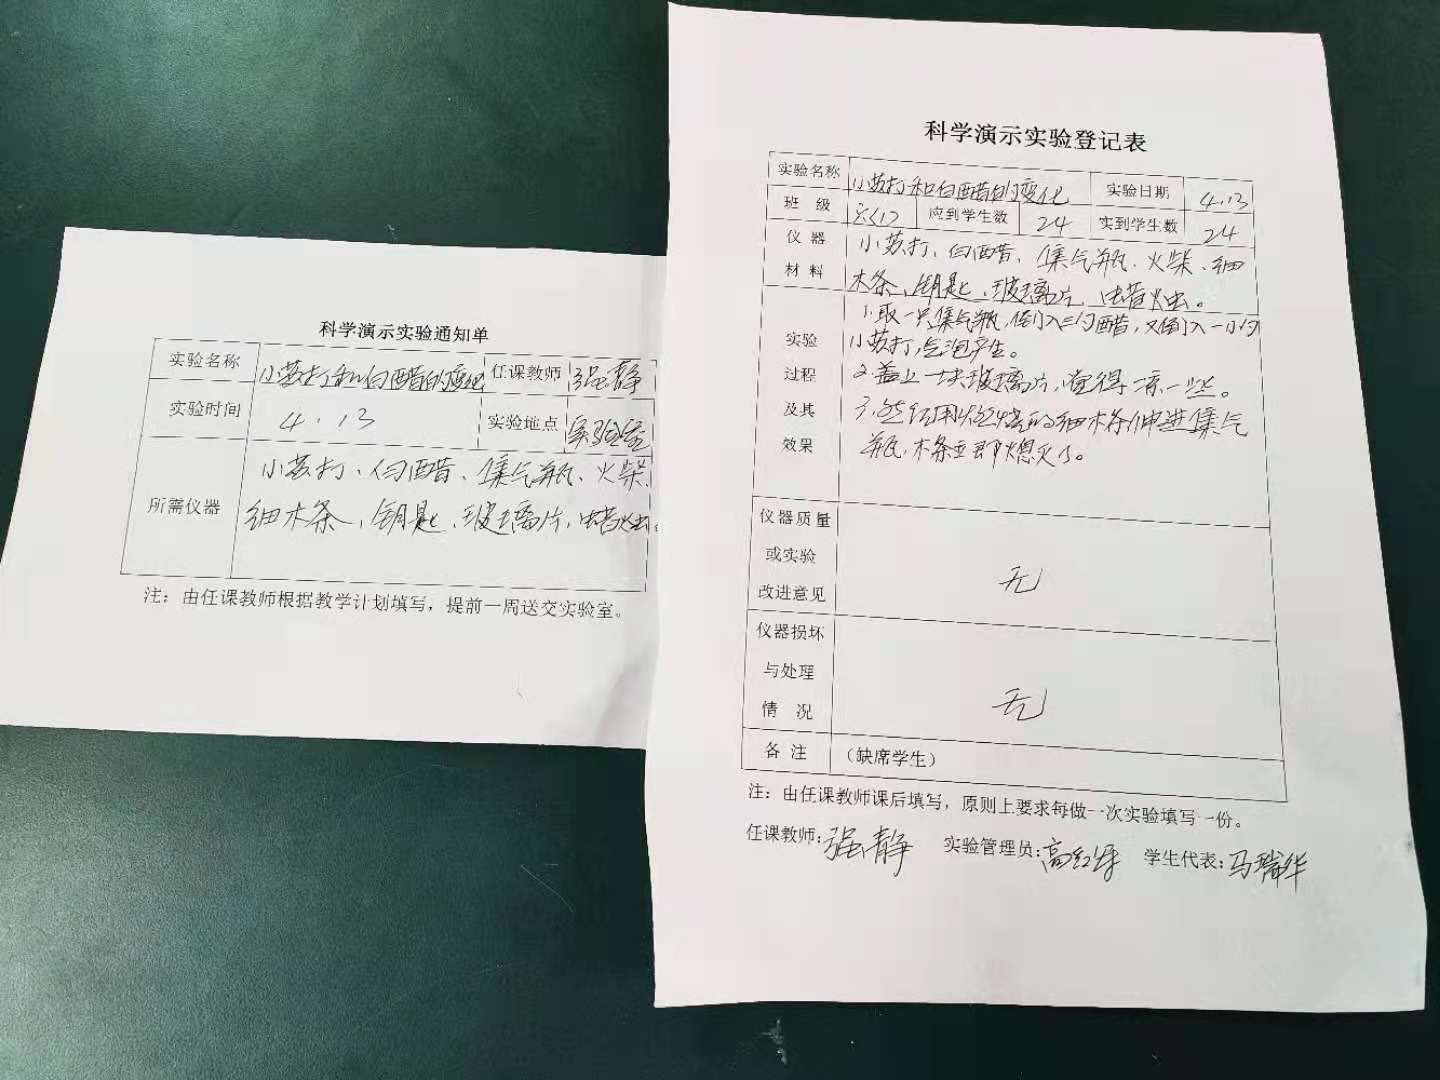 科学演示实验通知单
实验名称 小苏打和白醋的变化 任课教师 强静
实验时间 4.13 实验地点 实验室
所需仪器 小苏打、白醋、集气瓶、火柴、
细木条、钥匙、玻璃片、蜡烛。
注：由任课教师根据教学计划填写，提前一周送交实验室。
科学演示实验登记表
实验名称 小苏打和白醋的变化 实验日期 4.13
班 级 应到学生数 24 实到学生数 24
仪 器 小苏打、白醋、集气瓶、火柴、细
材 料 木条、钥匙、玻璃片、蜡烛。
1.取一只集气瓶，倒入三勺醋，又倒入一小勺
实验 小苏打，气泡产生。
过程 2.盖上一块玻璃片，觉得凉一些。
及其 3.然后用燃烧的细木条伸进集气
效果 瓶，木条立即熄灭了。
仪器质量
或实验 无
改进意见
仪器损坏
与处理 无
情 况
备 注 （缺席学生）
注：由任课教师课后填写，原则上要求每做一次实验填写一份。
任课教师：强静 实验管理员： 学生代表：马瑞华